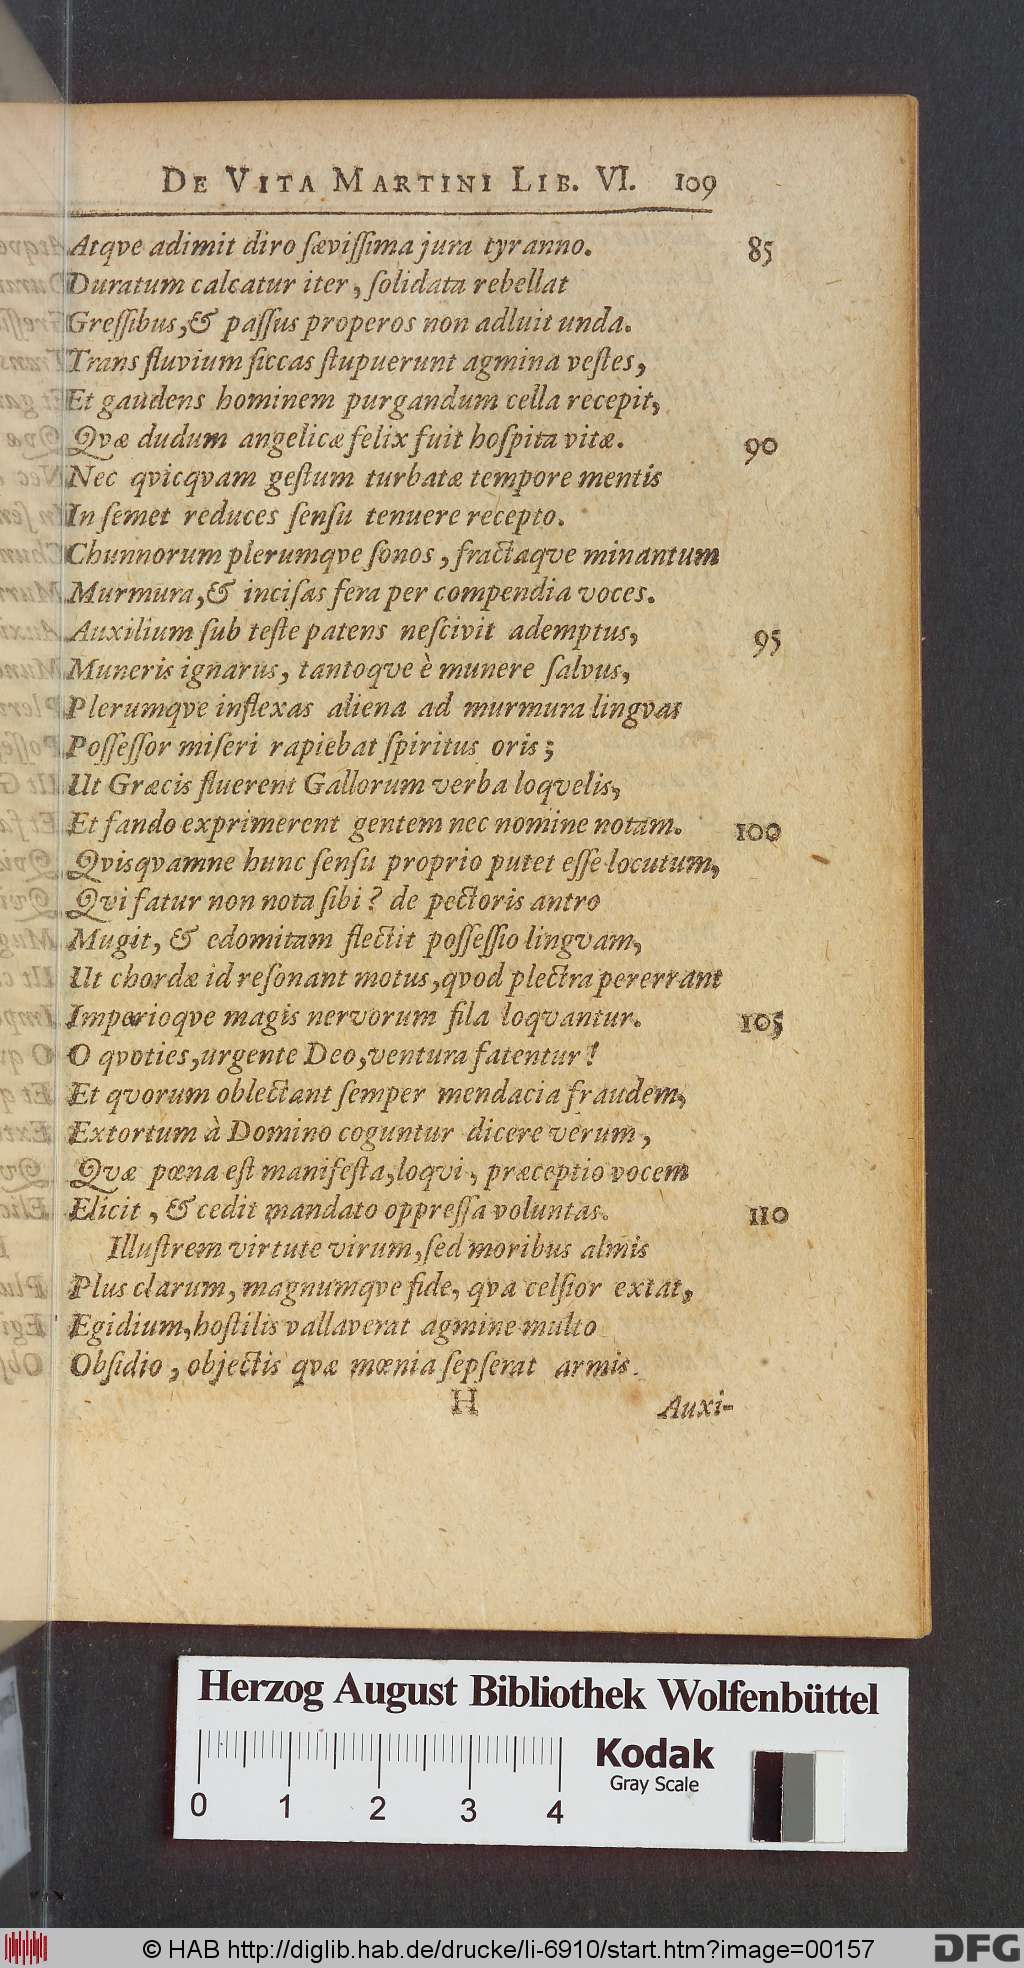 DE VITA MARTINI LIB. VI. 109
Atqve adimit diro sævissima jura tyranno. 85
Duratum calcatur iter, solidata rebellat
Gressibus, & passus properos non adluit unda.
Trans fluvium siccas stupuerunt agmina vestes,
Et gaudens hominem purgandum cella recepit,
Qvæ dudum angelicæ felix fuit hospita vitæ. 90
Nec qvicqvam gestum turbatæ tempore mentis
In semet reduces sensu tenuere recepto.
Chunnorum plerumqve sonos, fractaqve minantum
Murmura, & incisas fera per compendia voces.
Auxilium sub teste patens nescivit ademptus, 95
Muneris ignarus, tantoqve è munere salvus,
Plerumqve inflexas aliena ad murmura lingvas
Possessor miseri rapiebat spiritus oris;
Ut Græcis fluerent Gallorum verba loqvelis,
Et fando exprimerent gentem nec nomine notam. 100
Qvisqvamne hunc sensu proprio putet esse locutum,
Qvi fatur non nota sibi? de pectoris antro
Mugit, & edomitam flectit possessio lingvam,
Ut chordæ id resonant motus, qvod plectra pererrant
Imperioqve magis nervorum fila loqvantur. 105
O qvoties, urgente Deo, ventura fatentur!
Et qvorum oblectant semper mendacia fraudem,
Extortum à Domino coguntur dicere verum,
Qvæ pœna est manifesta, loqvi, præceptio vocem
Elicit, & cedit mandato oppressa voluntas. 110
Illustrem virtute virum, sed moribus almis
Plus clarum, magnumqve fide, qva celsior extat,
Egidium, hostilis vallaverat agmine multo
Obsidio, objectis qvæ mœnia sepserat armis.
H Auxi-
Herzog August Bibliothek Wolfenbüttel
Kodak
Gray Scale
0 1 2 3 4
© HAB http://diglib.hab.de/drucke/li-6910/start.htm?image=00157
DFG